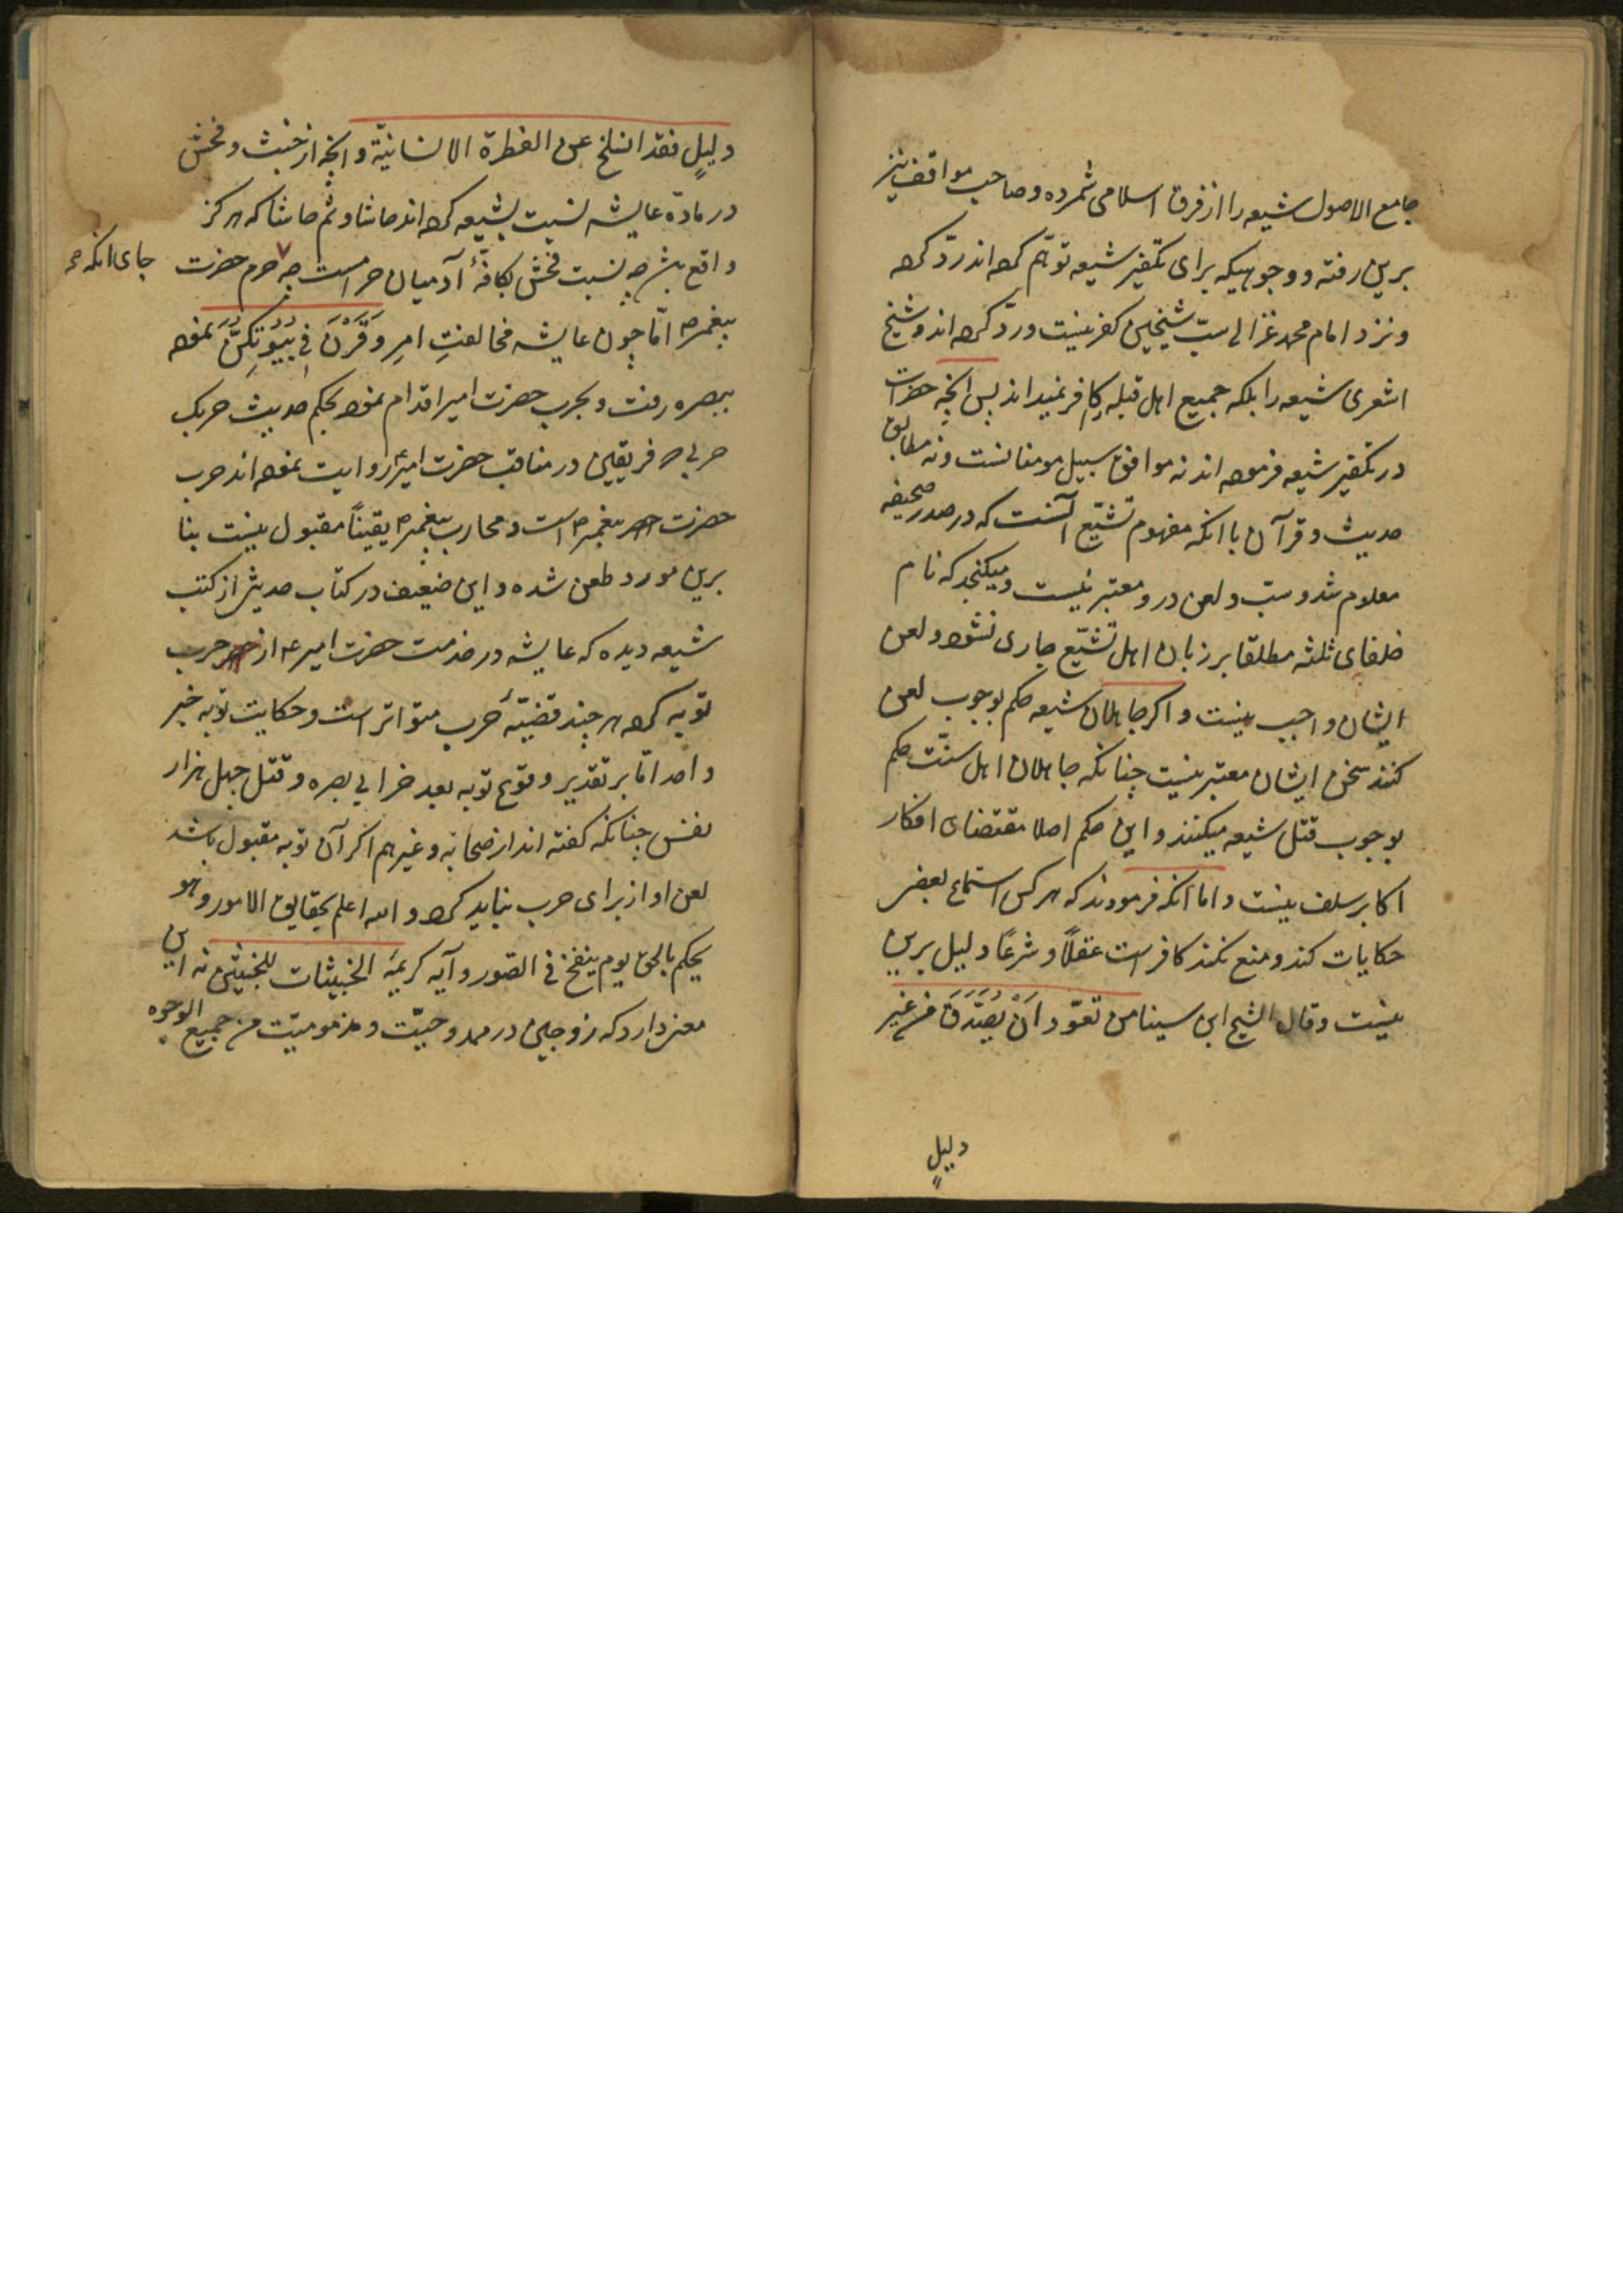 جامع الاصول شیعه را از فرق اسلامی شمرده و صاحب مواقف نیز
برین رفته و وجوهیکه برای تکفیر شیعه توهّم کرده اند ردّ کرده
و نزد امام محمد غزالی سبّ شیخین کفر نیست و ردّ کرده اند و شیخ
اشعری شیعه را بلکه جمیع اهل قبله را کافر نمیداند پس انچه حضرات
در تکفیر شیعه فرموده اند نه موافق سبیل مومنانست و نه مطابق
حدیث و قرآن با انکه مفهوم تشیّع آنست که در صدر صحیفه
معلوم شد و سبّ و لعن در و معتبر نیست و میکنجد که نام
خلفای ثلثه مطلقا بر زبان اهل تشیّع جاری نشود و لعن
ایشان واجب نیست و اکر جاهلان شیعه حکم بوجوب لعن
کنند سخن ایشان معتبر نیست چنانکه جاهلان اهل سنّت حکم
بوجوب قتل شیعه میکنند و این حکم اصلا مقتضای افکار
اکابر سلف نیست و اما انکه فرمودند که هر کس استماع بعضی
حکایات کند و منع نکند کافر است عقلاً و شرعًا دلیل برین
نیست و قال الشیخ ابن سینا من تعوّد اَنْ یُصَدِّقَ من غیر
دلیلٍ
دلیلٍ فقد انسلخ عن الفطرة الانسانیّة و انچه از خبث و فحش
در مادّه عایشه نسبت بشیعه کرده اند حاشا و ثم حاشا که هرکز
واقع شد چه نسبت فحش بکافّهٔ آدمیان حرامست چه حرم حضرت
جای انکه
پیغمبر ص امّا چون عایشه مخالفتِ امرِ وَقَرْنَ فِی بُیُوتِکُنَّ نموده
ببصره رفت و بحرب حضرت امیر اقدام نموده بحکم حدیث حربک
حربی که فریقین در مناقب حضرت امیر ع روایت نموده اند حرب
حضرت پیغمبر ص است و محارب پیغمبر ص یقیناً مقبول نیست بنا
برین مورد طعن شده و این ضعیف در کتاب حدیثی از کتب
شیعه دیده که عایشه در خدمت حضرت امیر ع از حرب
توبه کرده هر چند قضیّهٔ حرب متواتر است و حکایت توبه خبر
واحد امّا بر تقدیر وقوع توبه بعد خرابی بصره و قتل چهل هزار
نفس چنانکه کفته اند از صحابه و غیرهم اکر آن توبه مقبول باشد
لعن او از برای حرب نباید کرد و الله اعلم بحقایق الامور و هو
یحکم بالحق یوم ینفخ فی الصّور و آیه کریمهٔ الخبیثات للخبیثین نه این
معنی دارد که زوجین در ممدوحیّت و مذمومیّت من جمیع الوجوه